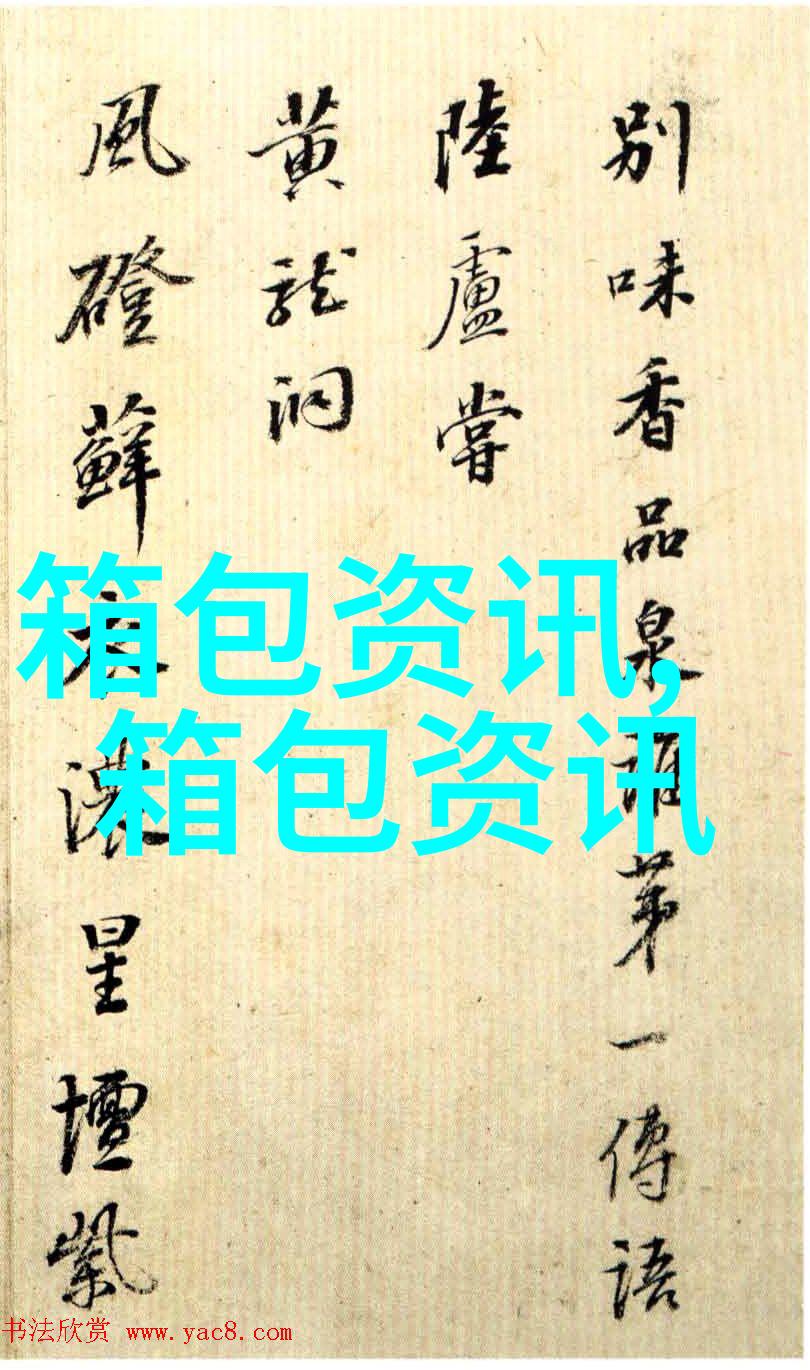 别味香品泉谁苐一傳語
陸盧嘗
黄龙洞
風磴蘚衣濃星壇紫
箱包资讯,
箱包资讯
书法欣赏 www.yac8.com